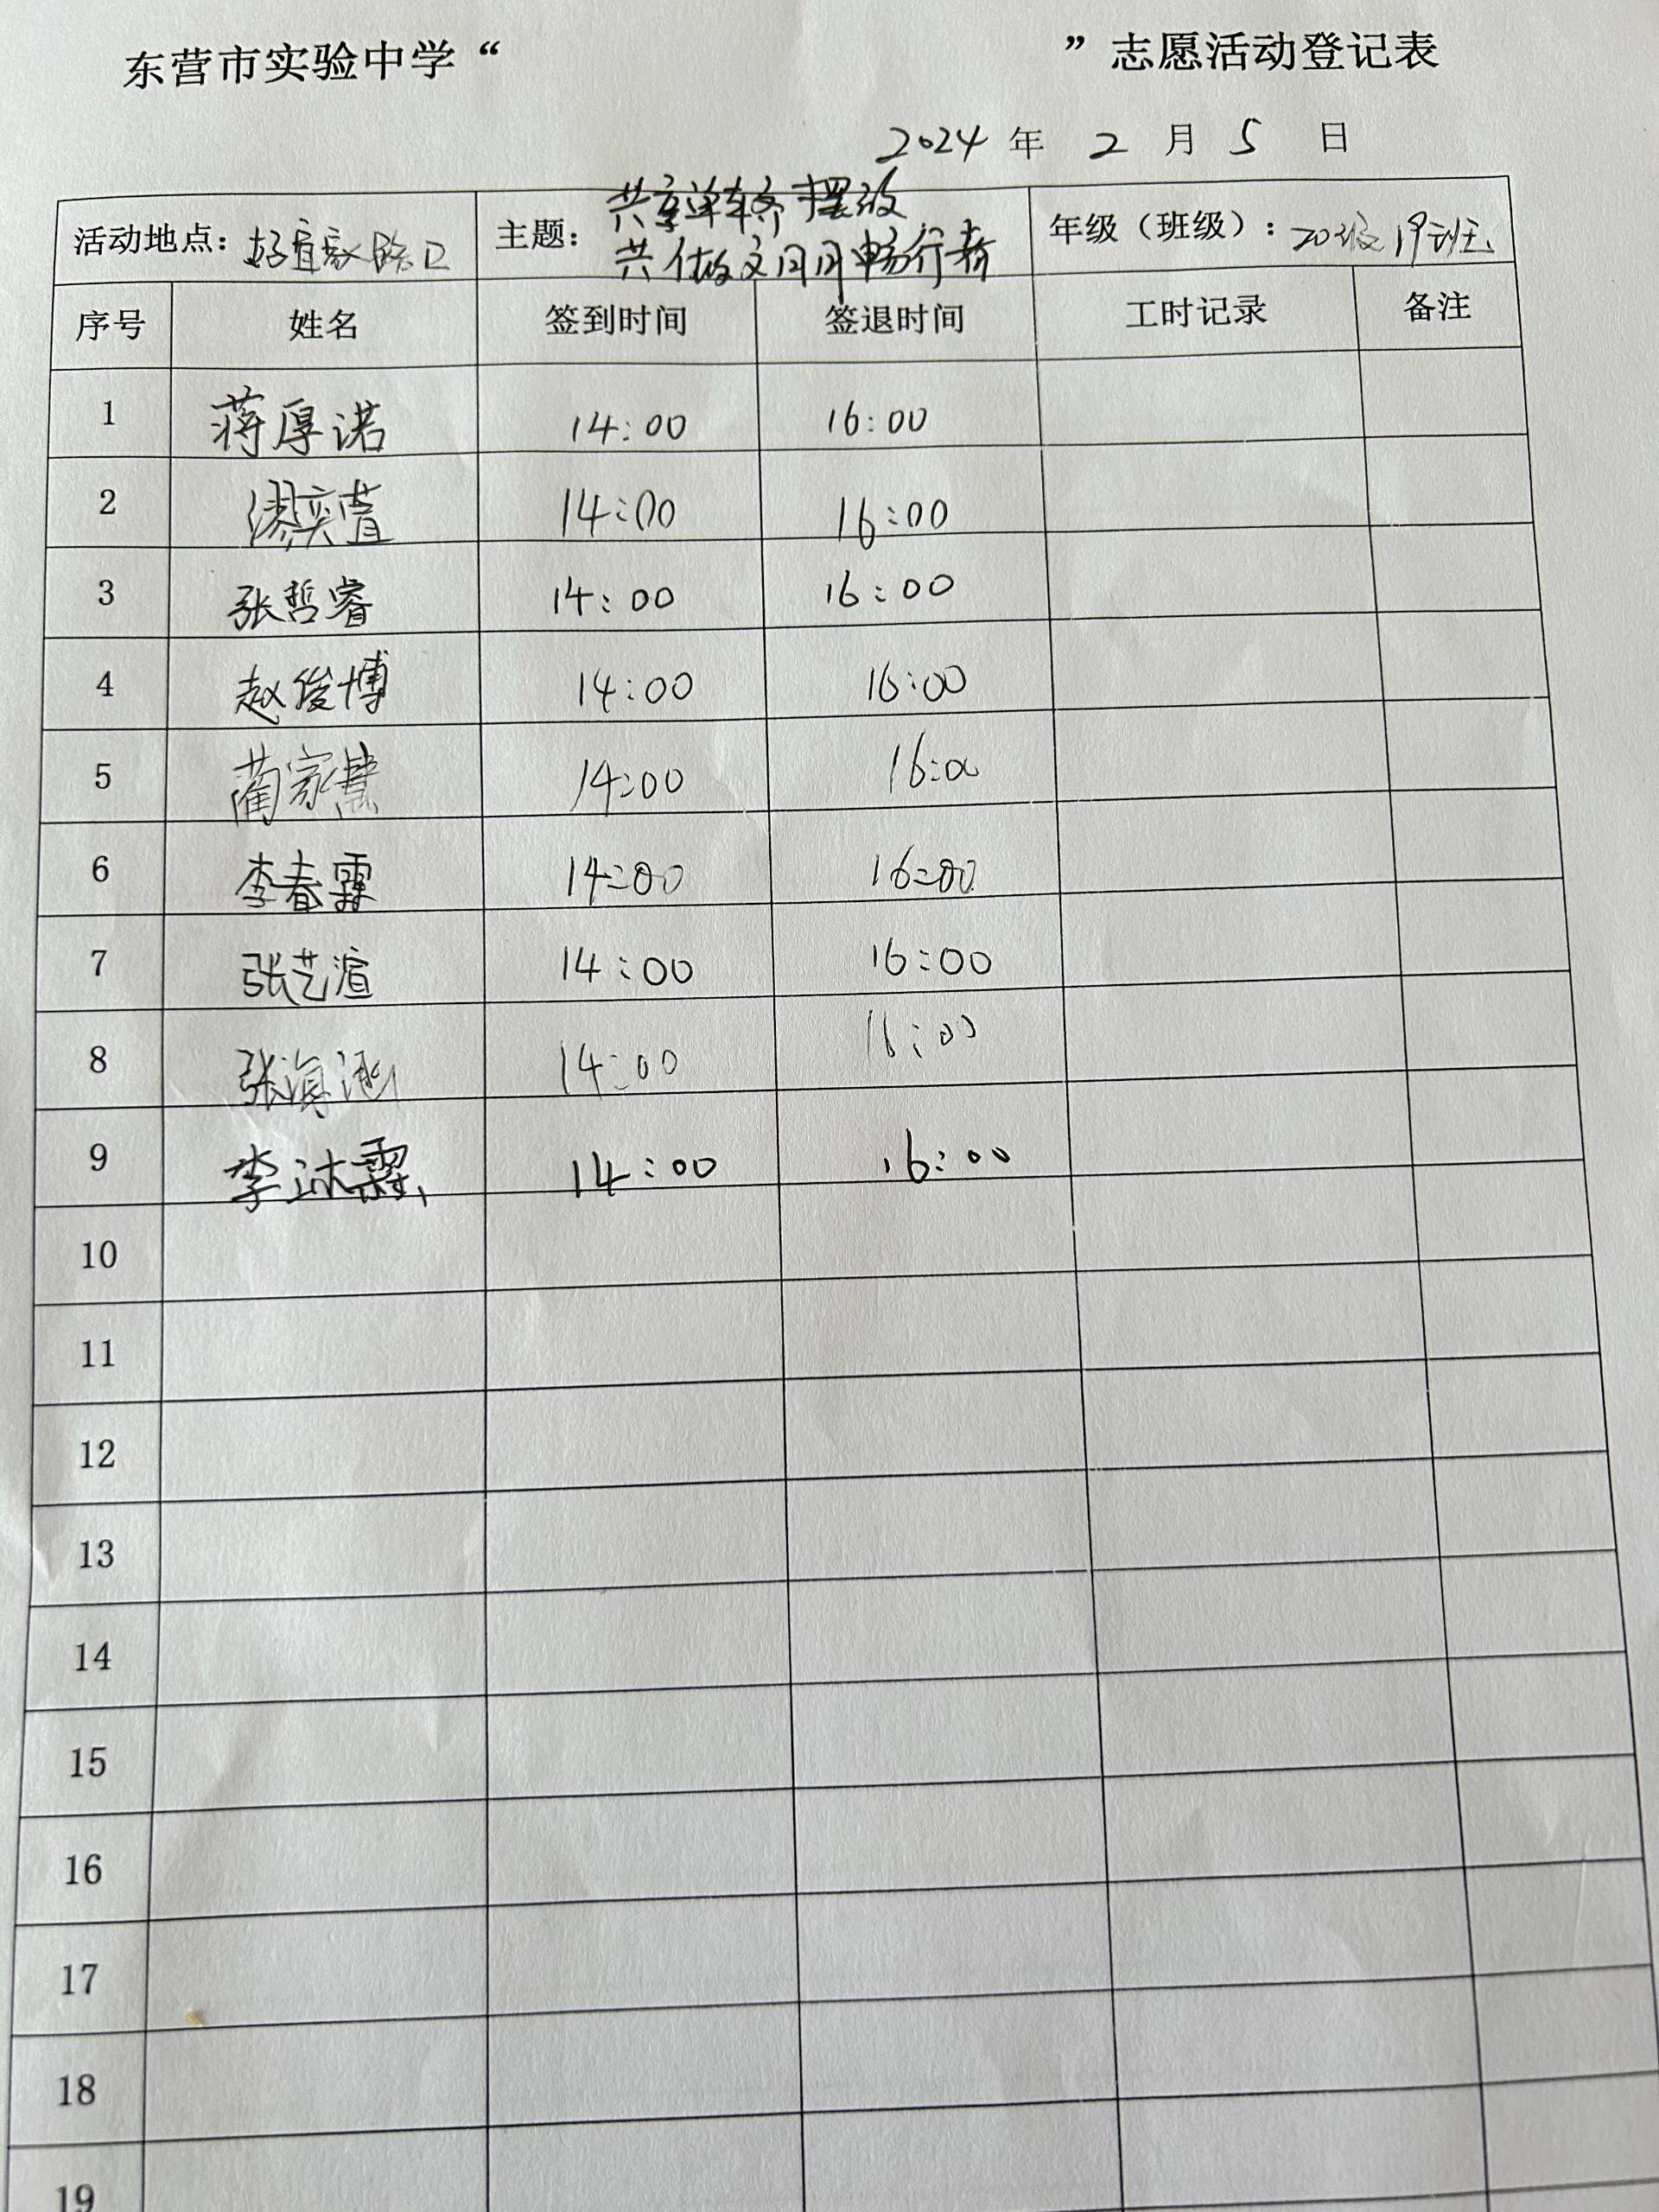 东营市实验中学“ ”志愿活动登记表
2024 年 2 月 5 日
活动地点：好宜家路口 主题：共享单车齐摆放 共做文明畅行者 年级（班级）：20级19班
序号 姓名 签到时间 签退时间 工时记录 备注
1 蒋厚诺 14:00 16:00
2 缪奕萱 14:00 16:00
3 张哲睿 14:00 16:00
4 赵俊博 14:00 16:00
5 蔺家慧 14:00 16:00
6 李春霖 14:00 16:00
7 张艺渲 14:00 16:00
8 张滇涵 14:00 16:00
9 李沐霖 14:00 16:00
10
11
12
13
14
15
16
17
18
19